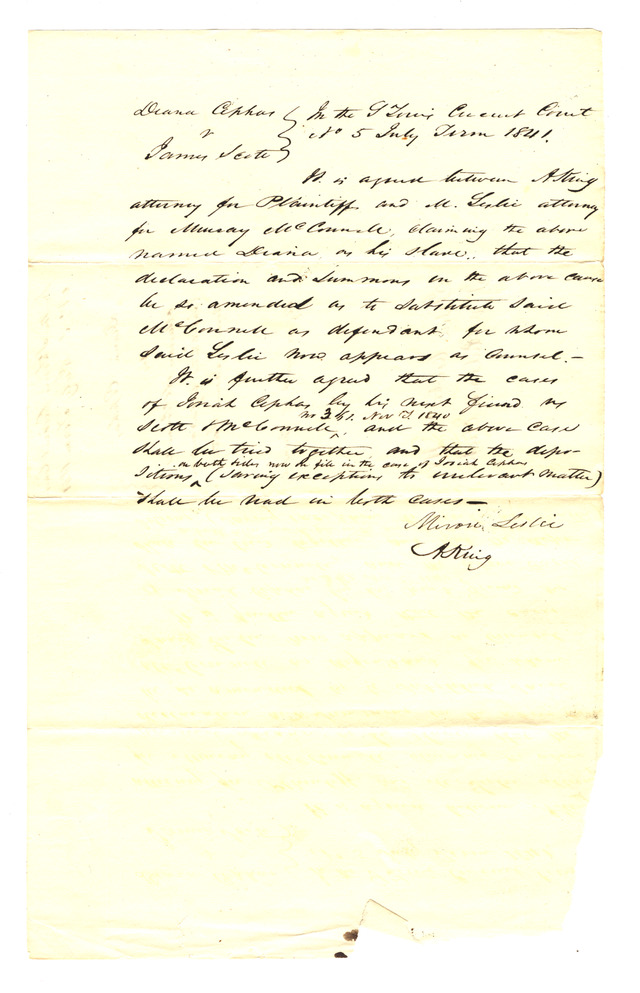 Diana Cephas } In the St Louis Circuit Court
v } No 5 July Term 1841.
James Scott }
It is agreed between A King
attorney for Plaintiff and M. Leslie attorney
for Murray McConnell, claiming the above
named Diana, as his slave, that the
declaration and summons in the above cause
be so amended as to substitute said
McConnell as defendant, for whom
said Leslie now appears as counsel.—
It is further agreed that the cases
of Josiah Cephas by his next friend vs
Scott & McConnell, ^ No 351. Nov T. 1840 and the above case
shall be tried together, and that the depo-
sitions ^ on both sides now on file in the case of Josiah Cephas (saving exceptions to irrelevant matter)
shall be read in both cases—
Miron Leslie
A King